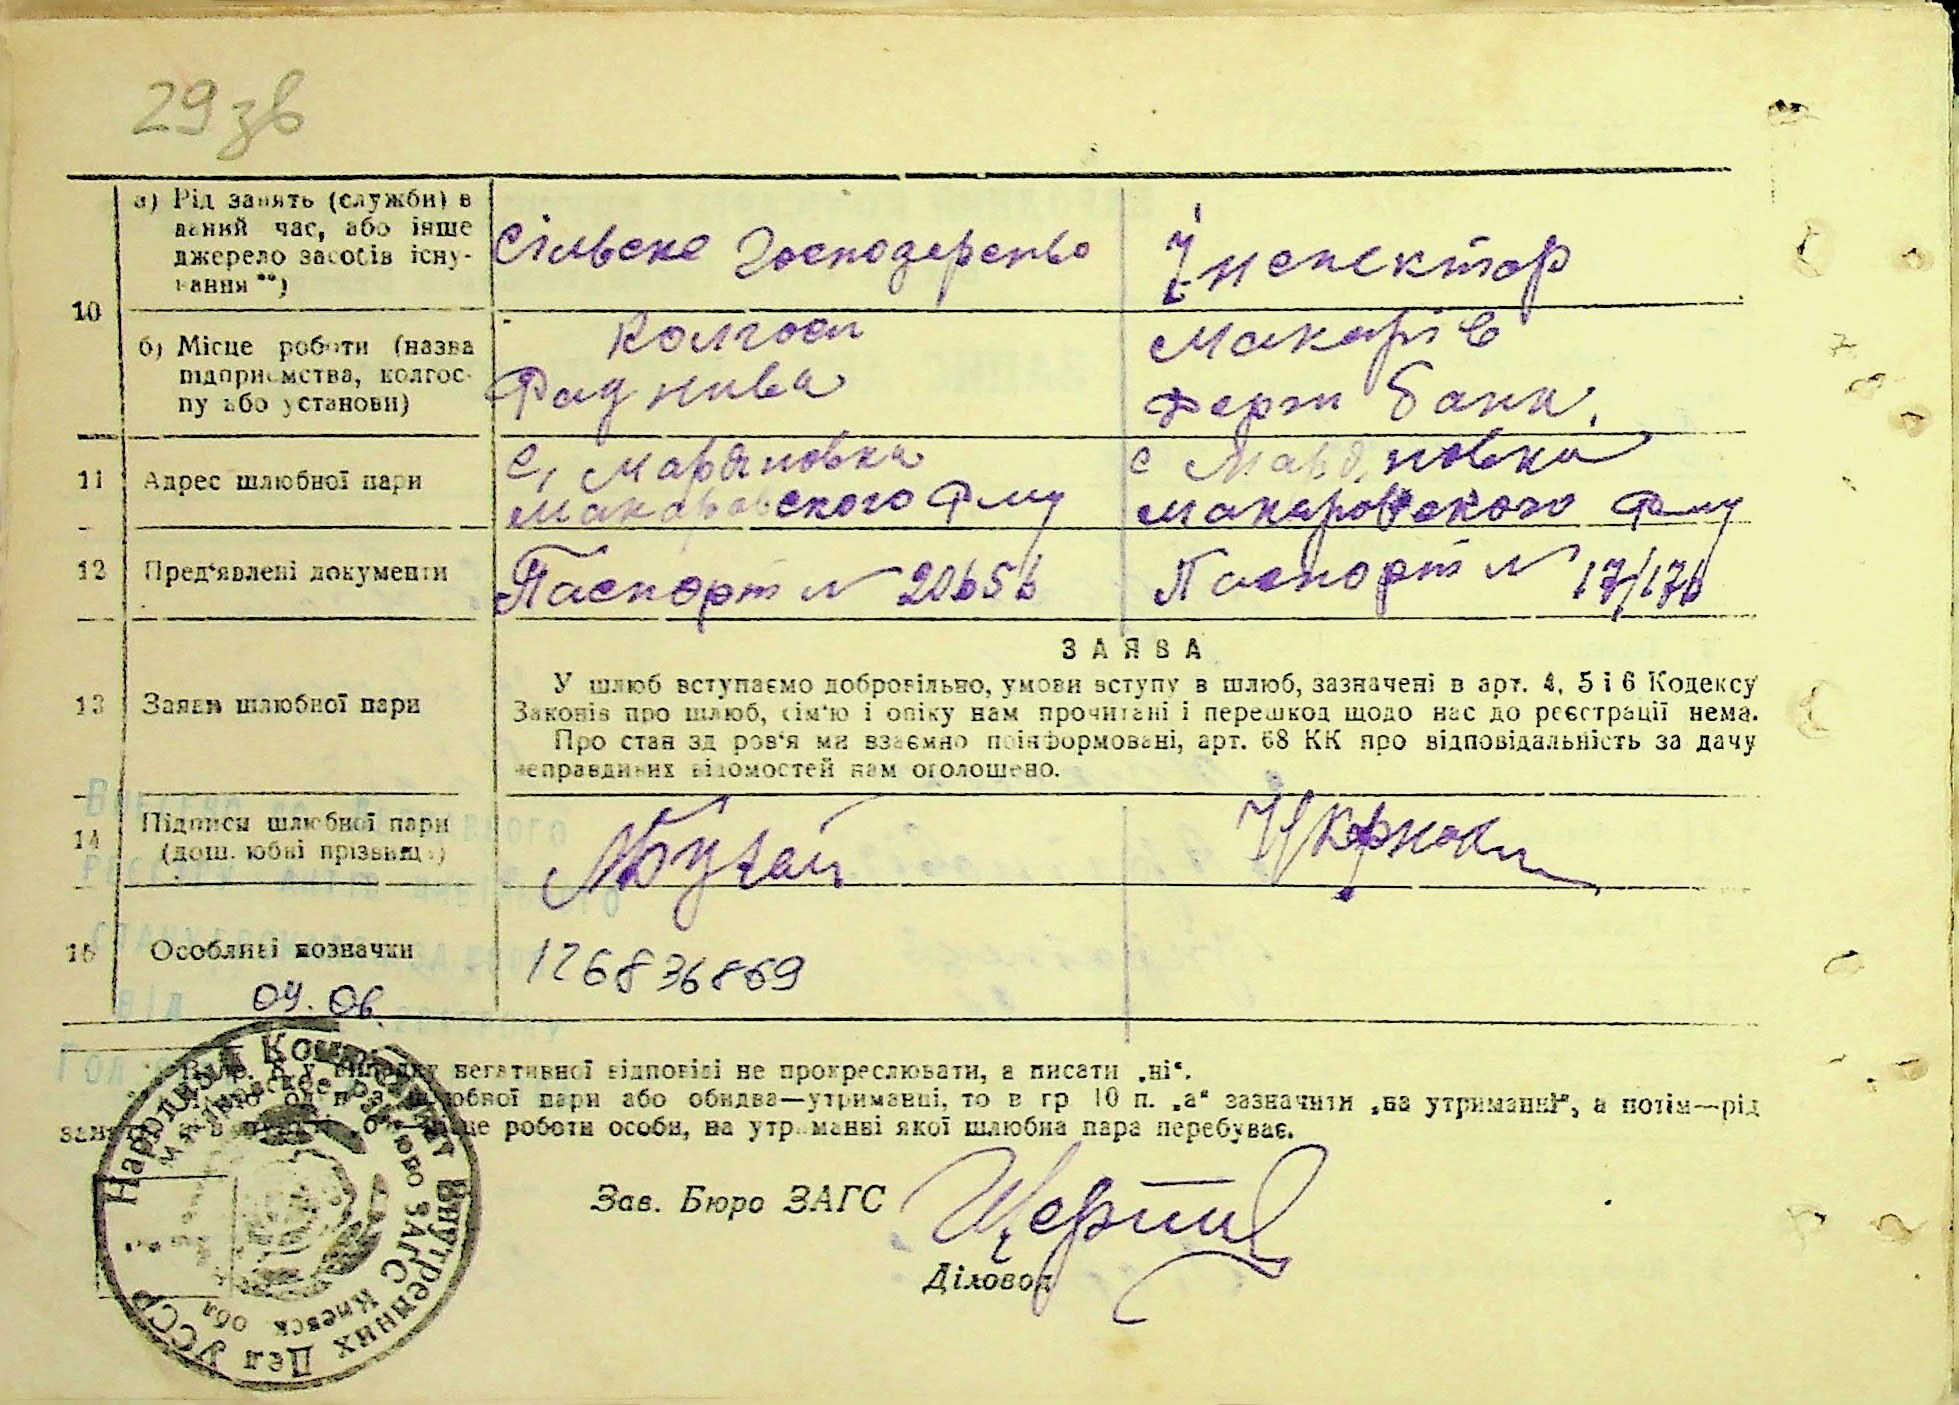 29 зв
а) Рід занять (служби) в
даний час, або інше
джерело засобів існу-
вання **)
Сільське Господарство
Інспектор
10
б) Місце роботи (назва
підприємства, колгос-
пу або установи)
Колгосп
Рад нива
Макарів
Держ банк.
11
Адрес шлюбної пари
с, Мар'яновка
Макаровского р-ну
с Мар'яновка
Макаровского р-ну
12
Пред'явлені документи
Паспорт № 20656
Паспорт № 17/176
13
Заява шлюбної пари
ЗАЯВА
У шлюб вступаємо добровільно, умови вступу в шлюб, зазначені в арт. 4, 5 і 6 Кодексу
Законів про шлюб, сім'ю і опіку нам прочитані і перешкод щодо нас до реєстрації нема.
Про стан здоров'я ми взаємно поінформовані, арт. 68 КК про відповідальність за дачу
неправдивих відомостей нам оголошено.
14
Підписи шлюбної пари
(дошлюбні прізвища)
15
Особливі позначки
126836869
04.06.
негативної відповіді не прокреслювати, а писати „ні“.
пари або обидва—утриманці, то в гр 10 п. „а“ зазначити „на утриманні“, а потім—рід
роботи особи, на утриманні якої шлюбна пара перебуває.
Зав. Бюро ЗАГС
Діловод
Народный Комиссариат Внутренних Дел УССР
Макаровское Районное Бюро ЗАГС Киевск обл